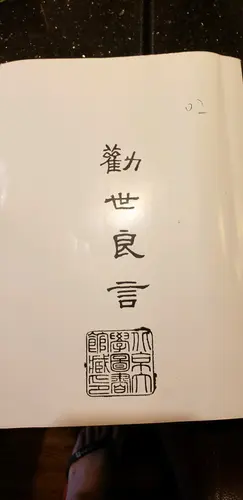 02
勸世良言
北京大
學圖書
館藏印